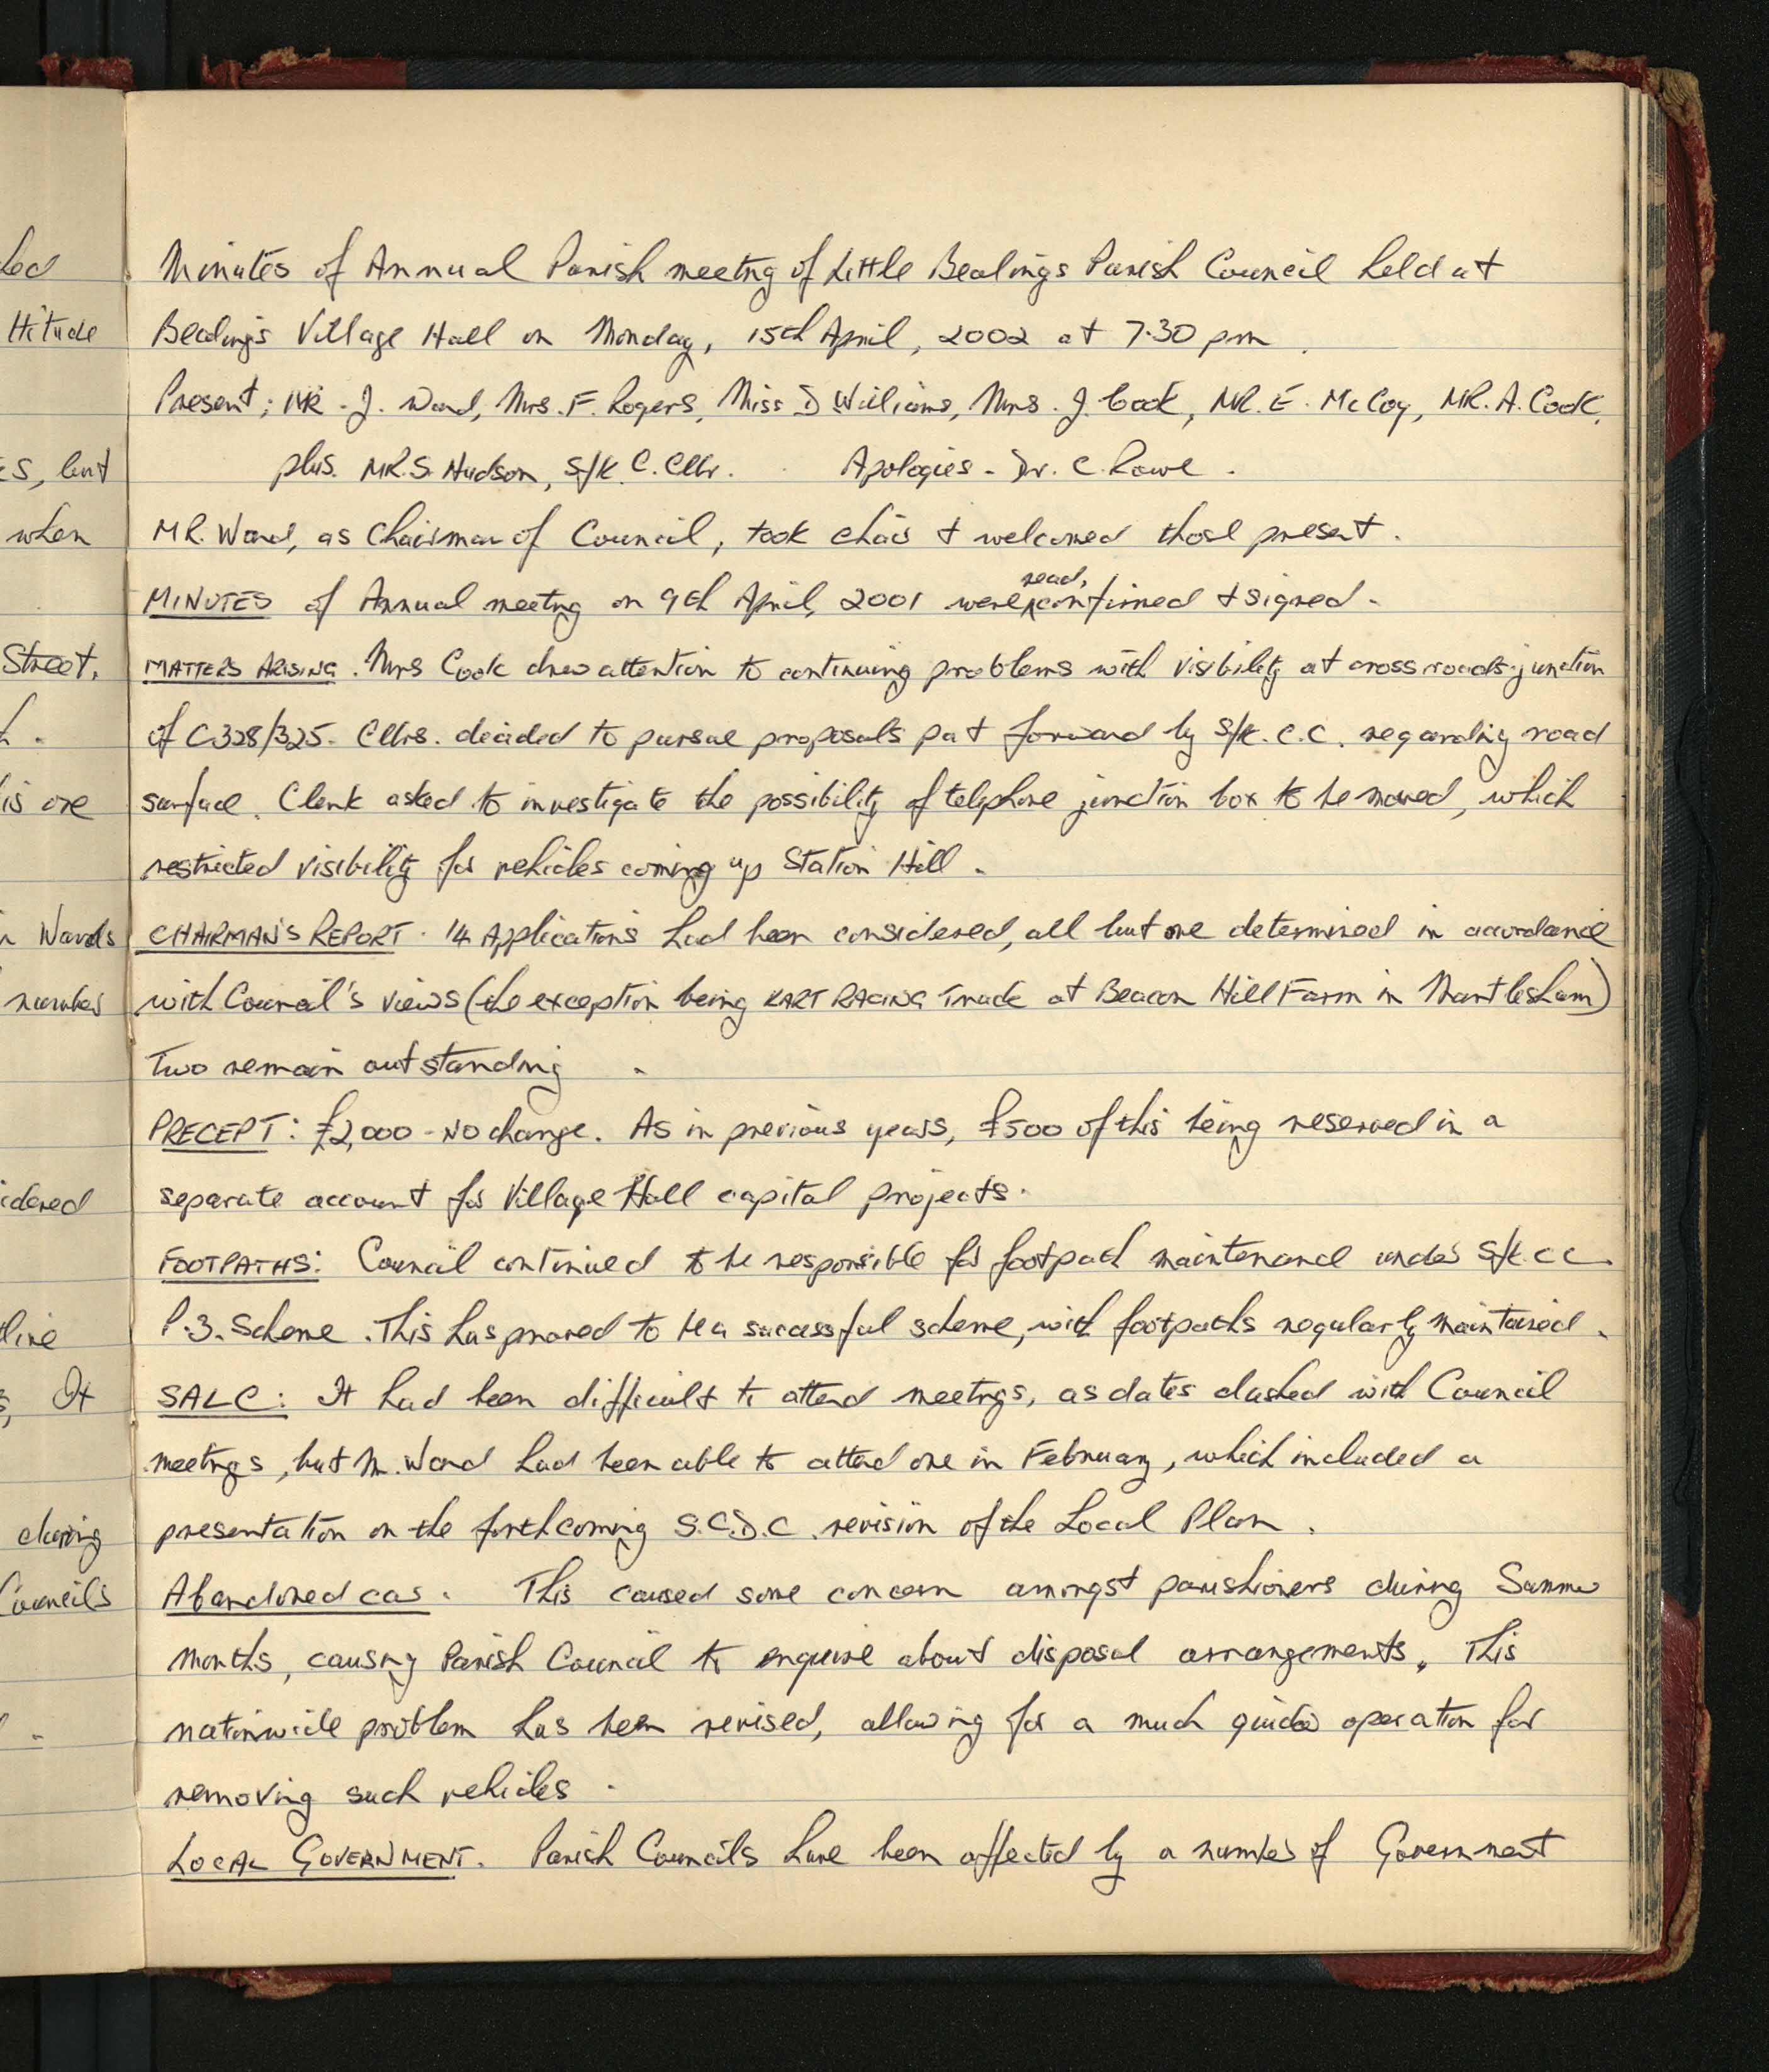 Minutes of Annual Parish meeting of Little Bealings Parish Council held at
Bealings Village Hall on Monday, 15th April, 2002 at 7.30 pm.
Present; MR. J. Ward, Mrs. F. Rogers, Miss D Williams, Mrs. J. Cook, MR. E. McCoy, MR. A. Cook,
plus. MR. S. Hudson, S/K. C. Cllr. Apologies - Dr. C. Rowe.
MR. Ward, as Chairman of Council, took chair + welcomed those present.
MINUTES of Annual meeting on 9th April, 2001 were read, confirmed + signed.
MATTERS ARISING. Mrs Cook drew attention to continuing problems with visibility at crossroads junction
of C328/325. Cllrs. decided to pursue proposals put forward by S/K. C.C. regarding road
surface. Clerk asked to investigate the possibility of telephone junction box to be moved, which
restricted visibility for vehicles coming up Station Hill.
CHAIRMAN'S REPORT. 14 Applications had been considered, all but one determined in accordance
with Council's views (the exception being KART RACING Track at Beacon Hill Farm in Martlesham)
Two remain outstanding.
PRECEPT: £2,000 - No change. As in previous years, £500 of this being reserved in a
separate account for Village Hall capital projects.
FOOTPATHS: Council continued to be responsible for footpath maintenance under S/K. C C.
P.3. Scheme. This has proved to be a successful scheme, with footpaths regularly maintained.
SALC: It had been difficult to attend meetings, as dates clashed with Council
meetings, but Mr. Ward had been able to attend one in February, which included a
presentation on the forthcoming S.C.D.C. revision of the Local Plan.
Abandoned cars. This caused some concern amongst parishioners during Summer
months, causing Parish Council to enquire about disposal arrangements. This
nationwide problem has been revised, allowing for a much quicker operation for
removing such vehicles.
LOCAL GOVERNMENT. Parish Councils have been affected by a number of Government